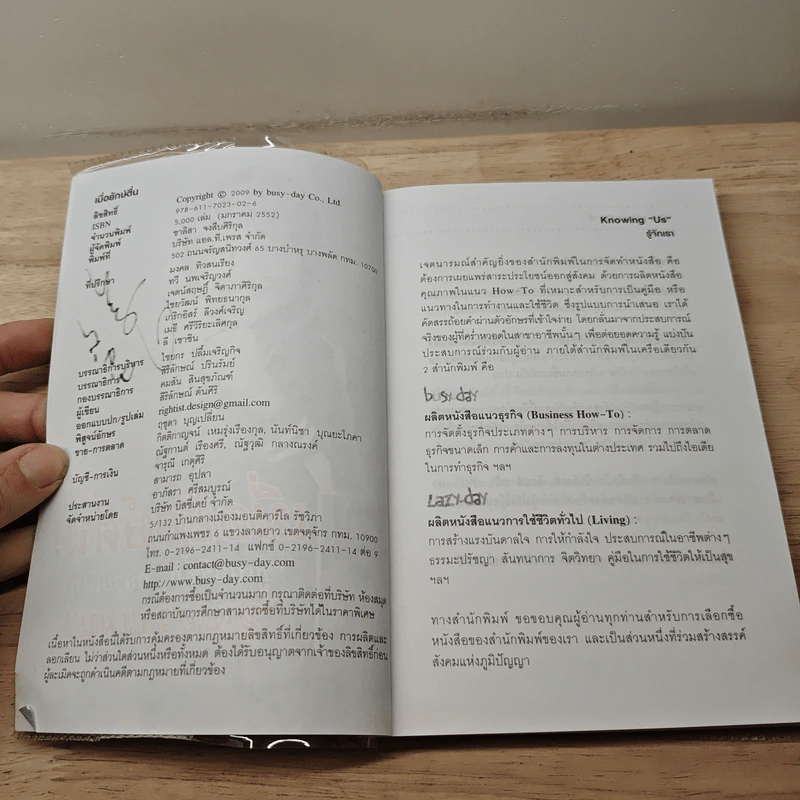 เมื่อยักษ์ตื่น
ลิขสิทธิ์ Copyright © 2009 by busy-day Co., Ltd.
ISBN 978-611-7023-02-6
จำนวนพิมพ์ 5,000 เล่ม (มกราคม 2552)
ผู้จัดพิมพ์ ชาลิสา จงสืบศิริกุล
พิมพ์ที่ บริษัท แอล.ที.เพรส จำกัด
502 ถนนจรัญสนิทวงศ์ 65 บางบำหรุ บางพลัด กทม. 10700
ที่ปรึกษา มงคล ทิวสนเรียง
ทวี นพเจริญวงศ์
เจตน์สฤษฎิ์ จิดาภาศิริกุล
ไชยวัฒน์ พิทยธนากุล
เกริกอิสร์ ลีวงศ์เจริญ
เมธี ศรีวิริยะเลิศกุล
ลี เซาซิน
บรรณาธิการบริหาร ไชยกร ปลื้มเจริญกิจ
บรรณาธิการ สิริลักษณ์ ปรีนรัมย์
กองบรรณาธิการ คมสัน สินสุขภัณฑ์
ผู้เขียน สิริลักษณ์ ตันศิริ
ออกแบบปก/รูปเล่ม rightist.design@gmail.com
พิสูจน์อักษร ฤชุตา บุญเปลี่ยน
ขาย-การตลาด กิตติกาญจน์ เหมรุ่งเรืองกุล, นันท์นิชา บุณยะโภคา
ณัฐกานต์ เรืองศรี, ณัฐวุฒิ กลางณรงค์
บัญชี-การเงิน จารุณี เกตุศิริ
สามารถ อุปลา
ประสานงาน อาภัสรา ศรีสมบูรณ์
จัดจำหน่ายโดย บริษัท บิสซี่เดย์ จำกัด
5/132 บ้านกลางเมืองมอนติคาร์โล รัชวิภา
ถนนกำแพงเพชร 6 แขวงลาดยาว เขตจตุจักร กทม. 10900
โทร. 0-2196-2411-14 แฟกซ์ 0-2196-2411-14 ต่อ 9
E-mail : contact@busy-day.com
http://www.busy-day.com
กรณีต้องการซื้อเป็นจำนวนมาก กรุณาติดต่อที่บริษัท ห้องสมุด
หรือสถาบันการศึกษาสามารถซื้อที่บริษัทได้ในราคาพิเศษ
เนื้อหาในหนังสือนี้ได้รับการคุ้มครองตามกฎหมายลิขสิทธิ์ที่เกี่ยวข้อง การผลิตและ
ลอกเลียน ไม่ว่าส่วนใดส่วนหนึ่งหรือทั้งหมด ต้องได้รับอนุญาตจากเจ้าของลิขสิทธิ์ก่อน
ผู้ละเมิดจะถูกดำเนินคดีตามกฎหมายที่เกี่ยวข้อง
Knowing "Us"
รู้จักเรา
เจตนารมณ์สำคัญยิ่งของสำนักพิมพ์ในการจัดทำหนังสือ คือ
ต้องการเผยแพร่สาระประโยชน์ออกสู่สังคม ด้วยการผลิตหนังสือ
คุณภาพในแนว How-To ที่เหมาะสำหรับการเป็นคู่มือ หรือ
แนวทางในการทำงานและใช้ชีวิต ซึ่งรูปแบบการนำเสนอ เราได้
คัดสรรถ้อยคำผ่านตัวอักษรที่เข้าใจง่าย โดยกลั่นมาจากประสบการณ์
จริงของผู้ที่คร่ำหวอดในสาขาอาชีพนั้นๆ เพื่อต่อยอดความรู้ แบ่งปัน
ประสบการณ์ร่วมกับผู้อ่าน ภายใต้สำนักพิมพ์ในเครือเดียวกัน
2 สำนักพิมพ์ คือ
busy-day
ผลิตหนังสือแนวธุรกิจ (Business How-To) :
การจัดตั้งธุรกิจประเภทต่างๆ การบริหาร การจัดการ การตลาด
ธุรกิจขนาดเล็ก การค้าและการลงทุนในต่างประเทศ รวมไปถึงไอเดีย
ในการทำธุรกิจ ฯลฯ
Lazy-day
ผลิตหนังสือแนวการใช้ชีวิตทั่วไป (Living) :
การสร้างแรงบันดาลใจ การให้กำลังใจ ประสบการณ์ในอาชีพต่างๆ
ธรรมะปรัชญา สันทนาการ จิตวิทยา คู่มือในการใช้ชีวิตให้เป็นสุข
ฯลฯ
ทางสำนักพิมพ์ ขอขอบคุณผู้อ่านทุกท่านสำหรับการเลือกซื้อ
หนังสือของสำนักพิมพ์ของเรา และเป็นส่วนหนึ่งที่ร่วมสร้างสรรค์
สังคมแห่งภูมิปัญญา